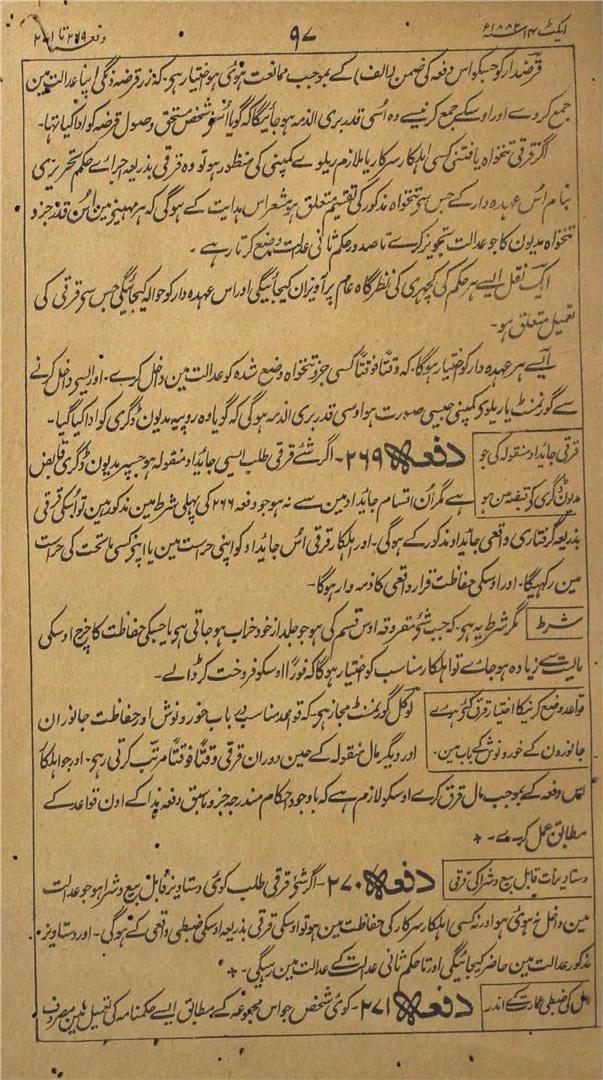 ایکٹ ۱۴ ۱۸۸۲ء ۹۷ دفعہ ۲۶۹ تا ۲۷۱
قرضدار کو جسکو اس دفعہ کی ضمن (الف) کے بموجب ممانعت ہوئی ہو اختیار ہی کہ زر قرضہ ذمگی اپنا عدالت مین
جمع کردے اور اوسکے جمع کرنیسے وہ اسی قدر بری الذمہ ہو جائیگا کہ گویا اسنے شخص مستحق وصول قرضہ کو ادا کیا تہا۔
اگر قرقی تنخواہ یافتنی کسی اہلکار سرکار یا ملازم ریلوے کمپنی کی منظور ہو تو وہ قرقی بذریعہ اجراے حکم تحریری
بنام اُس عہدہ دار کے جس سے تنخواہ مذکور کی تقسیم متعلق ہو مشعر اس ہدایت کے ہوگی کہ ہر مہینے مین اُس قدر جزو
تنخواہ مدیون کا جو عدالت تجویز کرے تا صدور حکم ثانی عدالت وضع کرتا رہے ۔
ایک نقل ایسے ہر حکم کی کچہری کی نظر گاہ عام پر آویزان کیجائیگی اور اس عہدہ دار کو حوالہ کیجائیگی جس سے قرقی کی
تعمیل متعلق ہو۔
ایسے ہر عہدہ دار کو اختیار ہوگا کہ وقتاً فوقتاً کسی جزو تنخواہ وضع شدہ کو عدالت مین داخل کرے۔ اور ایسے داخل کرنے
سے گورنمنٹ یا ریلوی کمپنی جیسی صورت ہو اوسی قدر بری الذمہ ہوگی کہ گویا وہ روپیہ مدیون ڈگری کو ادا کیا گیا۔
قرقی جائداد منقولہ کی جو دفعہ ۲۶۹۔ اگر شئے قرقی طلب ایسی جائداد منقولہ ہو جسپر مدیون ڈگری قابض
مدیون ڈگری کے قبضہ مین ہو ہے مگر اُن اقسام جائداد مین سے نہ ہو جو دفعہ ۲۶۶ کی پہلی شرط مین مذکور ہین تو اسکی قرقی
بذریعہ گرفتاری واقعی جائداد مذکور کے ہوگی۔ اور اہلکار قرقی اُس جائداد کو اپنی حراست مین یا اپنے کسی ماتحت کی حراست
مین رکھیگا۔ اور اوسکی حفاظت قرار واقعی کا ذمہ وار ہوگا۔
شرط مگر شرط یہ ہی۔ کہ جب شئے مقروقہ اوس قسم کی ہو جو جلد از خود خراب ہو جاتی ہی یا جسکی حفاظت کا خرچ اوسکی
مالیت سے زیادہ ہو جاے تو اہلکار مناسب کو اختیار ہوگا کہ فوراً اوسکو فروخت کر ڈالے۔
قواعد وضع کرنیکا اختیار قرق کئے ہوے لوکل گورنمنٹ مجاز ہی۔ کہ قواعد مناسب بے باب خور و نوش اور حفاظت جانوران
جانورون کے خور و نوش کے باب مین۔ اور دیگر مال منقولہ کے حین دوران قرقی وقتاً فوقتاً مرتب کرتی رہی۔ اور جو اہلکار
اس دفعہ کے بموجب مال قرق کرے اوسکو لازم ہے کہ باوجود احکام مندرجہ جزو ماسبق دفعہ ہذا کے اون قواعد کے
مطابق عمل کرے۔ *
دستاویزات قابل بیع و شرا کی قرقی دفعہ ۲۷۰۔ اگر شئے قرقی طلب کوئی دستاویز قابل بیع و شرا ہو جو عدالت
مین داخل نہ ہوئی ہو اور نہ کسی اہلکار سرکار کی حفاظت مین ہو تو اوسکی قرقی بذریعہ اوسکی ضبطی واقعی کے ہوگی۔ اور دستاویز
مذکور عدالت مین حاضر کیجائیگی اور تا حکم ثانی عدالت کے عدالت مین رہیگی۔ *
مال کی ضبطی عمارت کے اندر دفعہ ۲۷۱۔ کوئی شخص جو اس مجموعہ کے مطابق ایسے حکمنامہ کی تعمیل مین مصروف